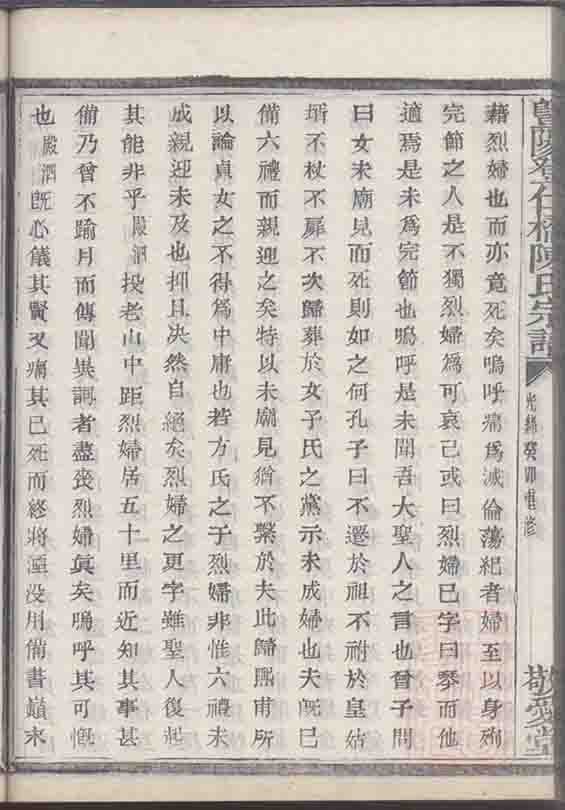 暨陽孝仁橋陳氏宗譜
光緒癸卯重修
敬愛堂
藉烈婦也而亦竟死矣嗚呼痛爲滅倫蕩紀者婦至以身殉
完節之人是不獨烈婦爲可哀已或曰烈婦已字曰琴而他
適焉是未爲完節也嗚呼是未聞吾大聖人之言也曾子問
曰女未廟見而死則如之何孔子曰不遷於祖不祔於皇姑
壻不杖不屝不次歸葬於女子氏之黨示未成婦也夫旣已
備六禮而親迎之矣特以未廟見猶不繫於夫此歸熙甫所
以論貞女之不得爲中庸也若方氏之子烈婦非惟六禮未
成親迎未及也抑且决然自絕矣烈婦之更字雖聖人復起
其能非乎殿泗投老山中距烈婦居五十里而近知其事甚
備乃曾不踰月而傳聞異詞者盡喪烈婦眞矣嗚呼其可慨
也殿泗旣心儀其賢又痛其已死而終將湮没用備書顚末